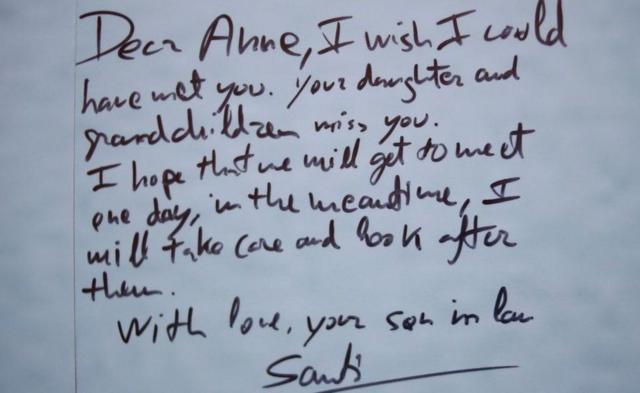 Dear Anne, I wish I could
have met you. your daughter and
grandchildren miss you.
I hope that we will get to meet
one day, in the meantime, I
will take care and look after
them.
With love, your son in law
Santi